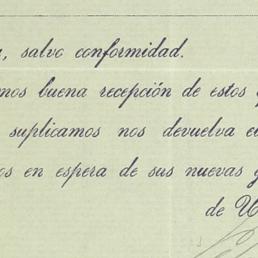 , salvo conformidad.
mos buena recepción de estos
suplicamos nos devuelva
os en espera de sus nuevas
de U